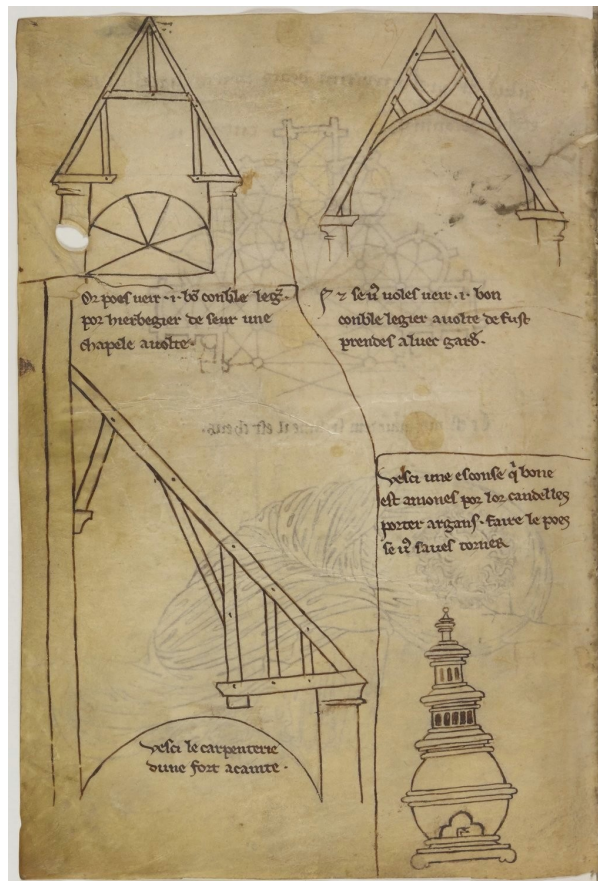 Or poes veir .i. bō conble legˀ.
por hierbegier de seur une
chapele a volte.
⁊ se vˀ voles veir .i. bon
conble legier a volte de fust
prendes aluec gard̄.
Vesci une esconse q̇ bone
est a mones por lor candelles
porter argans. faire le poes
se vˀ saves torner
Vesci le carpenterie
dune fort acainte.